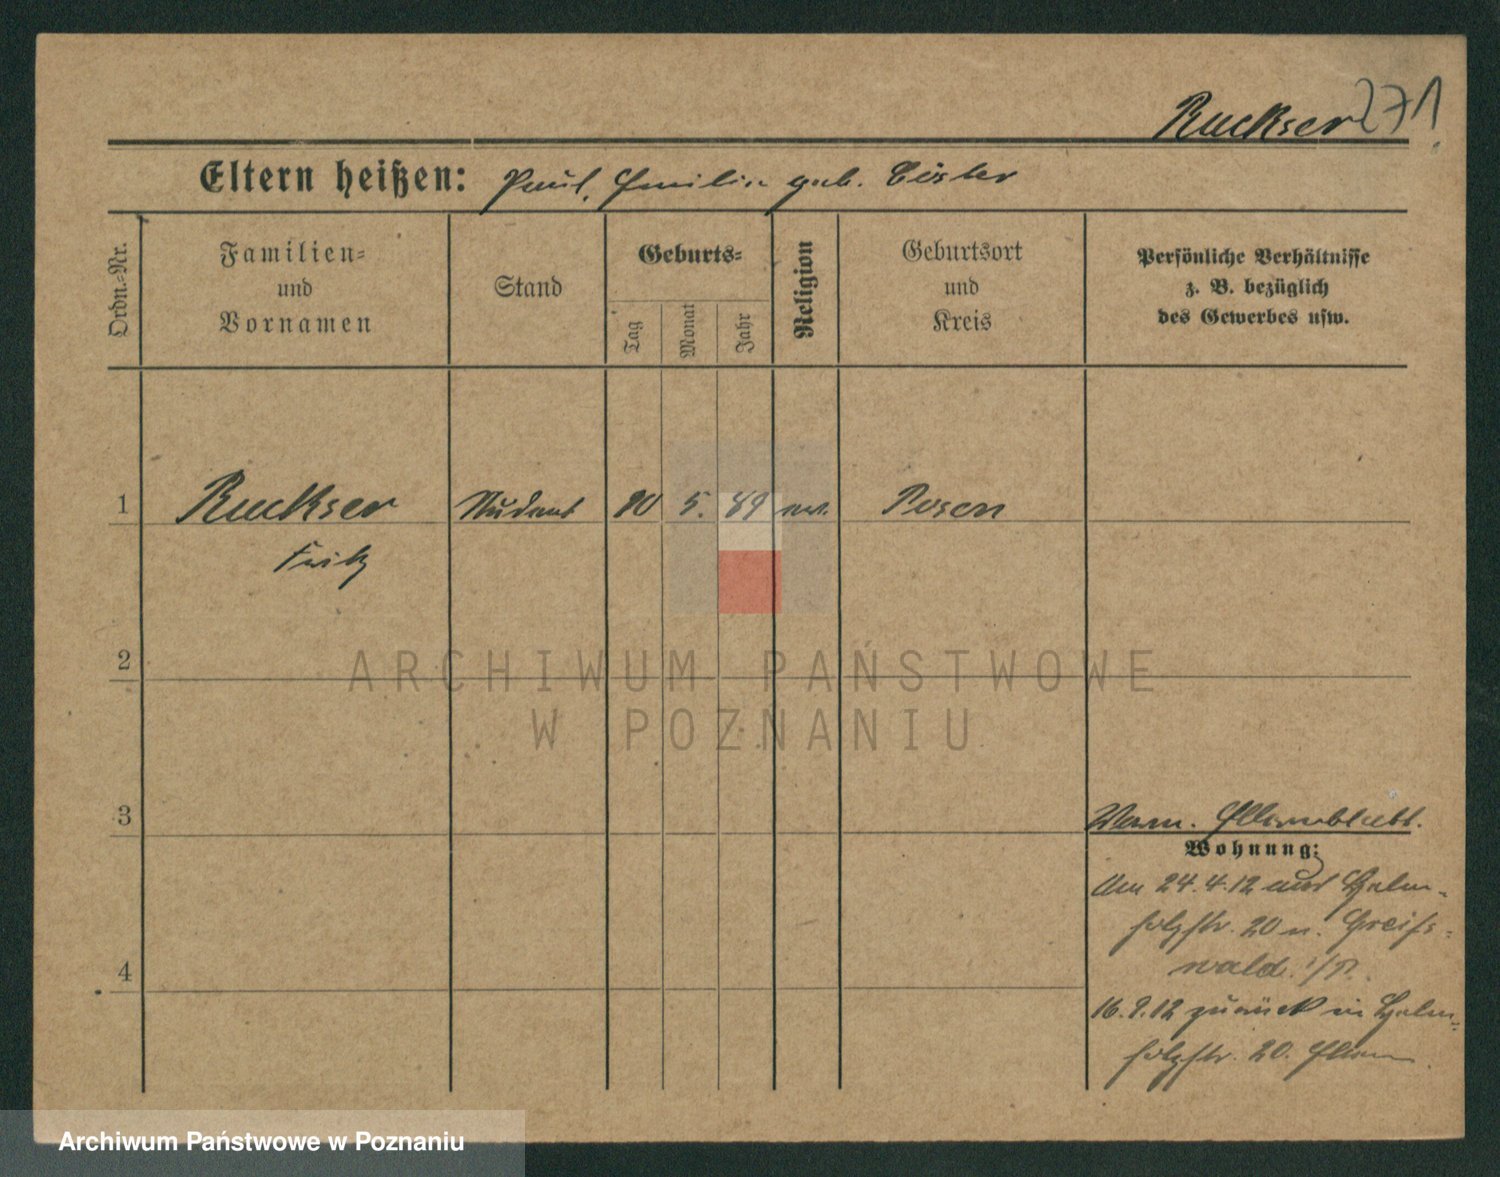 Ruckser 271
Eltern heißen: Paul, Emilie geb.
Ordn.-Nr.
Familien-
und
Vornamen
Stand
Geburts-
Tag
Monat
Jahr
Religion
Geburtsort
und
Kreis
Persönliche Verhältnisse
z. B. bezüglich
des Gewerbes usw.
1 Ruckser Student 5. 89 ev. Posen
Fritz
2
ARCHIWUM PAŃSTWOWE
W POZNANIU
3
Verm. Elternblatt.
Wohnung:
Am 24.4.12 aus Helm-
holzstr. 20 n. Greifs-
wald i/P.
4
12 zurück in Helm-
holzstr. 20. Eltern
Archiwum Państwowe w Poznaniu